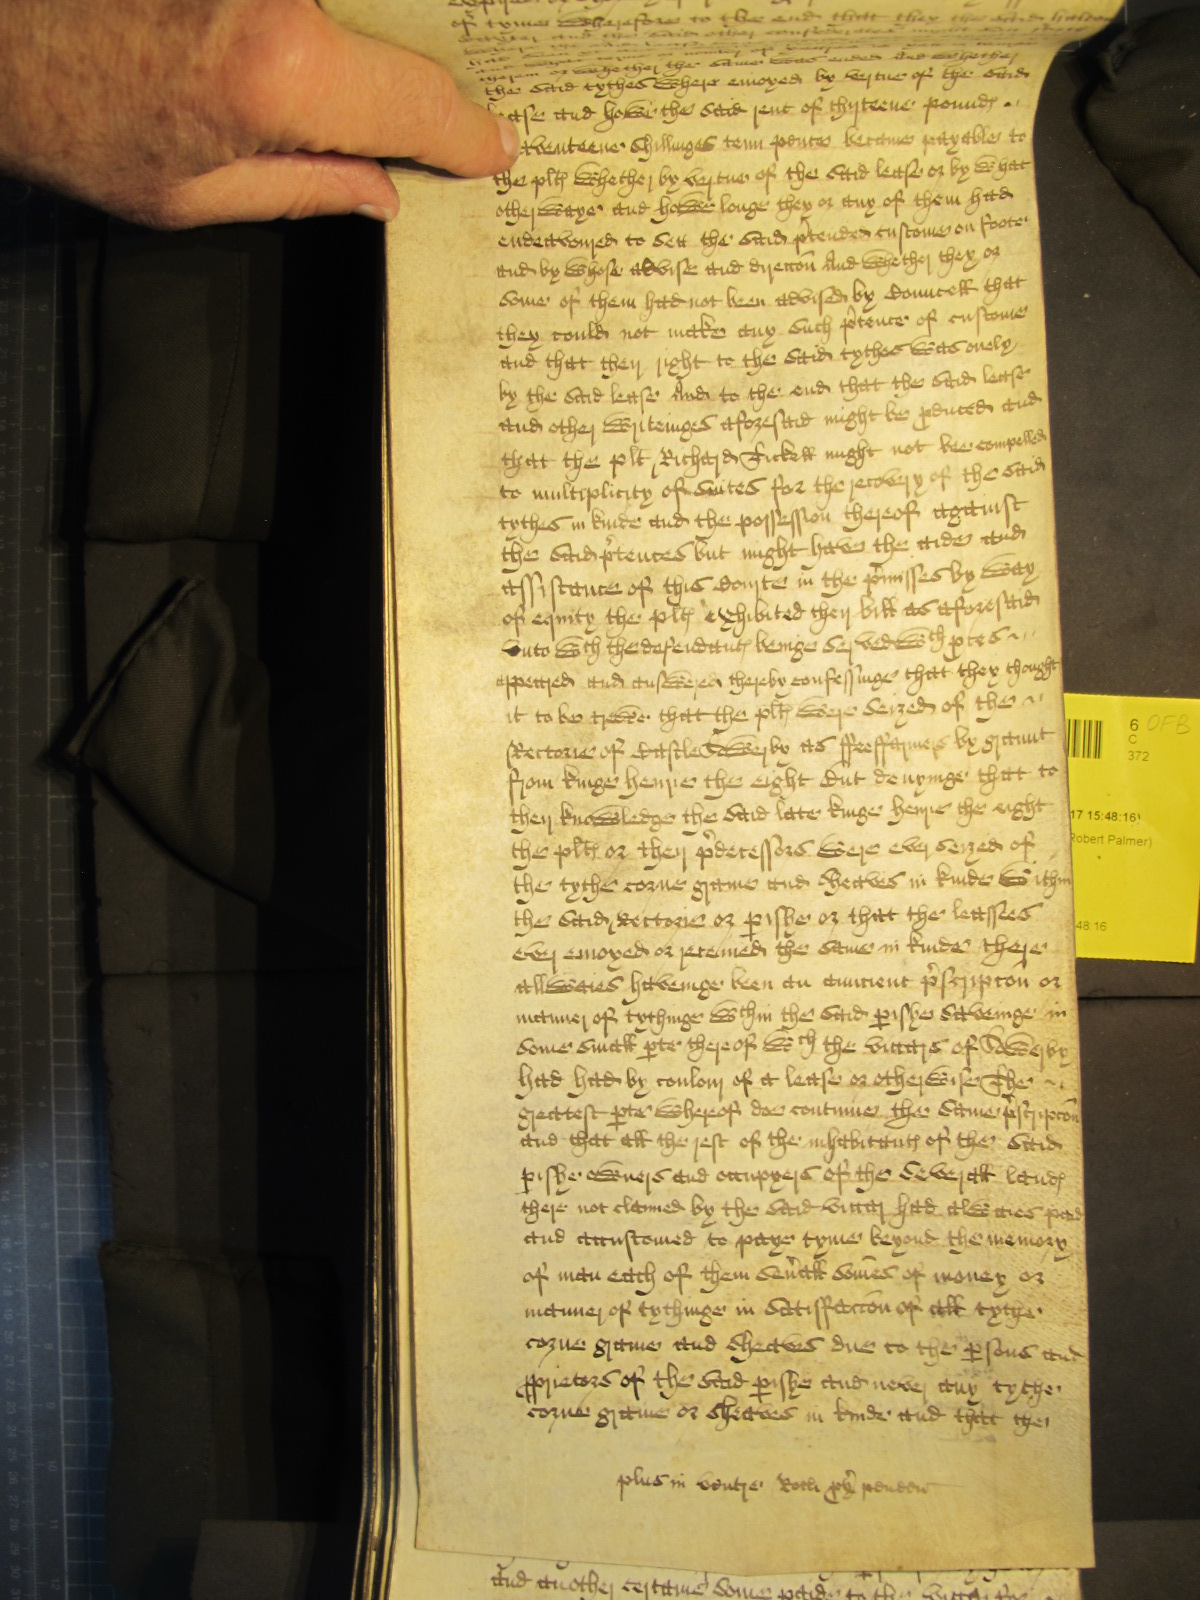 of tyme Wherefore to the end that they the said
the same was ended And whether
the said tythes where enioyed by vertue of the said
lease and howe the said rent of thirteene pounds
seaventeene shillinges tenn pence became payable to
the plts whether by vertue of the said lease or by what
other waye and howe longe they or any of them had
endeavoured to sett the said ptended custome on foote
and by whose advise and direccon And whether they or
some of them had not been advised by Councell that
they could not make any such ptence of custome
and that their right to the said tythes was onely
by the said lease And to the end that the said lease
and other writeinges aforesaid might be pduced and
that the plt Richard Tickell might not bee compelled
to multiplicity of suites for the recovery of the said
tythes in kinde and the possession thereof against
the said ptences but might have the aide and
assistance of this Courte in the pmisses by way
of equity the plts exhibited their bill as aforesaid
Unto wch the defendants beinge served wth pces
appeared and answered thereby confessinge that they thought
it to be trewe that the plts were seized of the
Rectorie of Castle Sowerby as ffeeffarmers by graunt
from kinge henrie the eight But denyinge that to
their knowledge the said late kinge henrie the eight
the plts or their pdecessors were ever seized of
the tythe corne graine and sheaves in kinde within
the said Rectorie or pishe or that the leassees
ever enioyed or receaved the same in kinde there
allwaies haveinge been an auncient pscripcon or
manner of tythinge wthin the said pishe saveinge in
some small pte thereof wch the viccars of Sowerby
had had by coulour of a lease or otherwise The
greatest pte whereof doe contynue the same pscripcon
and that all the rest of the inhabitants of the said
pishe owners and occupyers of the severall lands
there not claimed by the said viccar had alwaies paid
and accustomed to paye tyme beyond the memory
of man each of them seuall somes of money or
manner of tythinge in satisfaccon of all tythe
corne graine and sheaves due to the psons and
pprietors of the said pishe and never any tythe
corne graine or sheaves in kinde and that the
plus in ventre Rotli
And another certaine some paide to the viccar for